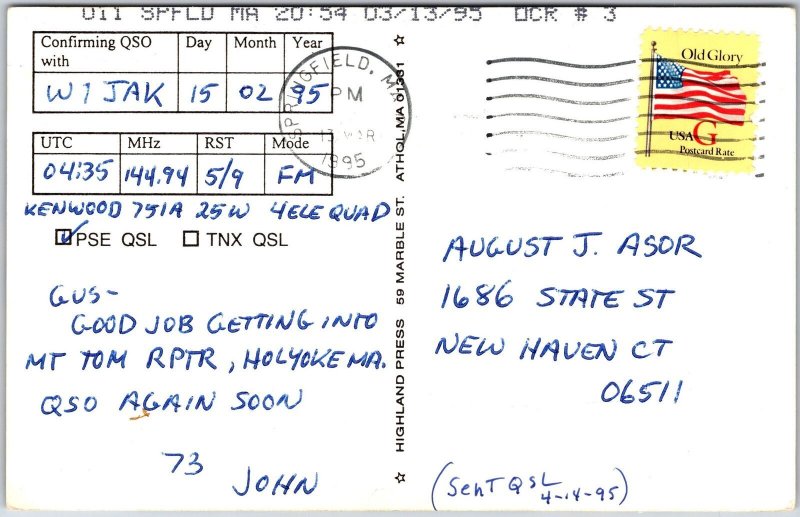 011 SPFLD MA 20:54 03/13/95 OCR # 3
Confirming QSO with Day Month Year
W1JAK 15 02 95
UTC MHz RST Mode
04:35 144.94 5/9 FM
KENWOOD 751A 25W 4ELE QUAD
PSE QSL TNX QSL
GUS-
GOOD JOB GETTING INTO
MT TOM RPTR, HOLYOKE MA.
QSO AGAIN SOON
73
JOHN
HIGHLAND PRESS 59 MARBLE ST. ATHOL, MA 01331
SPRINGFIELD, MA
PM
13 MAR
1995
Old Glory
USA G
Postcard Rate
AUGUST J. ASOR
1686 STATE ST
NEW HAVEN CT
06511
(Sent QSL
4-14-95)